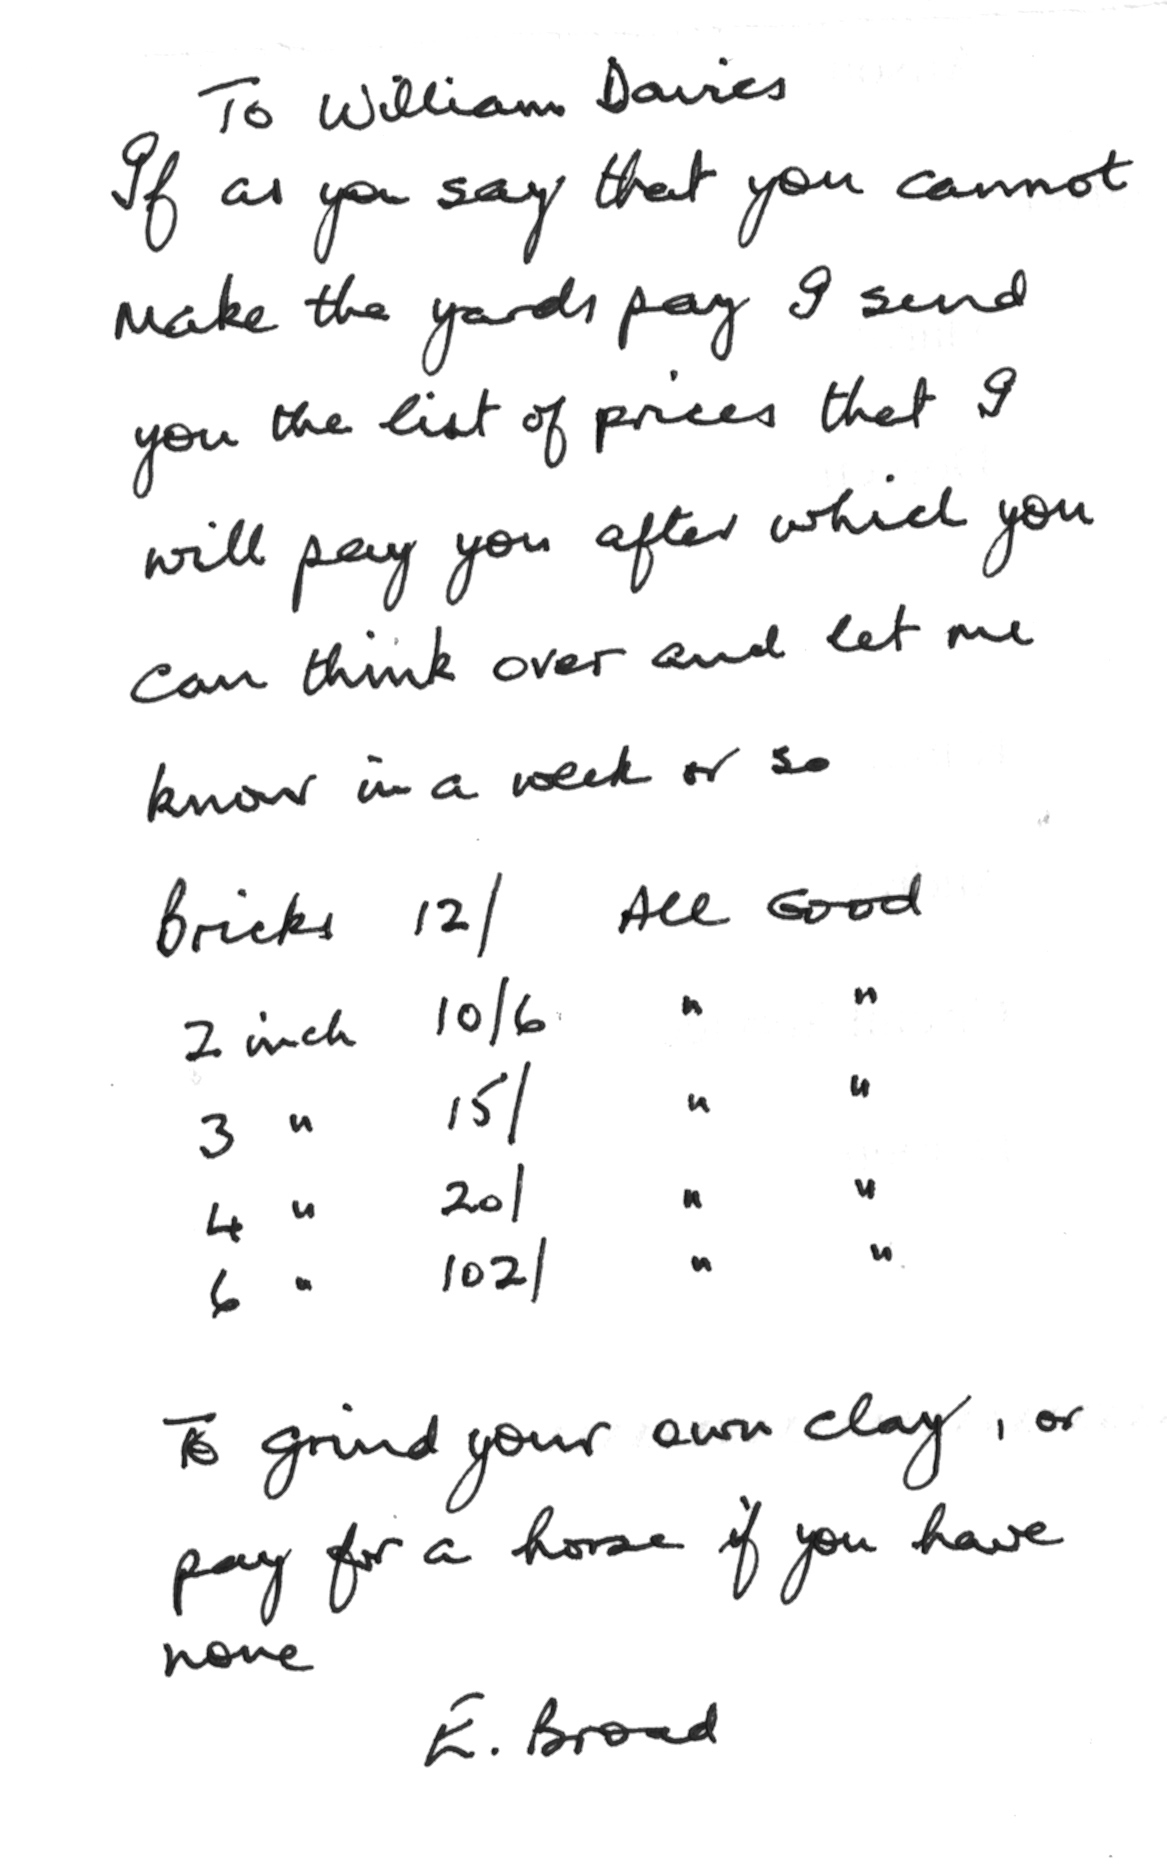 To William Davies
If as you say that you cannot
Make the yards pay I send
you the list of prices that I
will pay you after which you
can think over and let me
know in a week or so
Bricks 12/ All Good
2 inch 10/6 " "
3 " 15/ " "
4 " 20/ " "
6 " 102/ " "
To grind your own clay, or
pay for a horse if you have
none
E. Broad